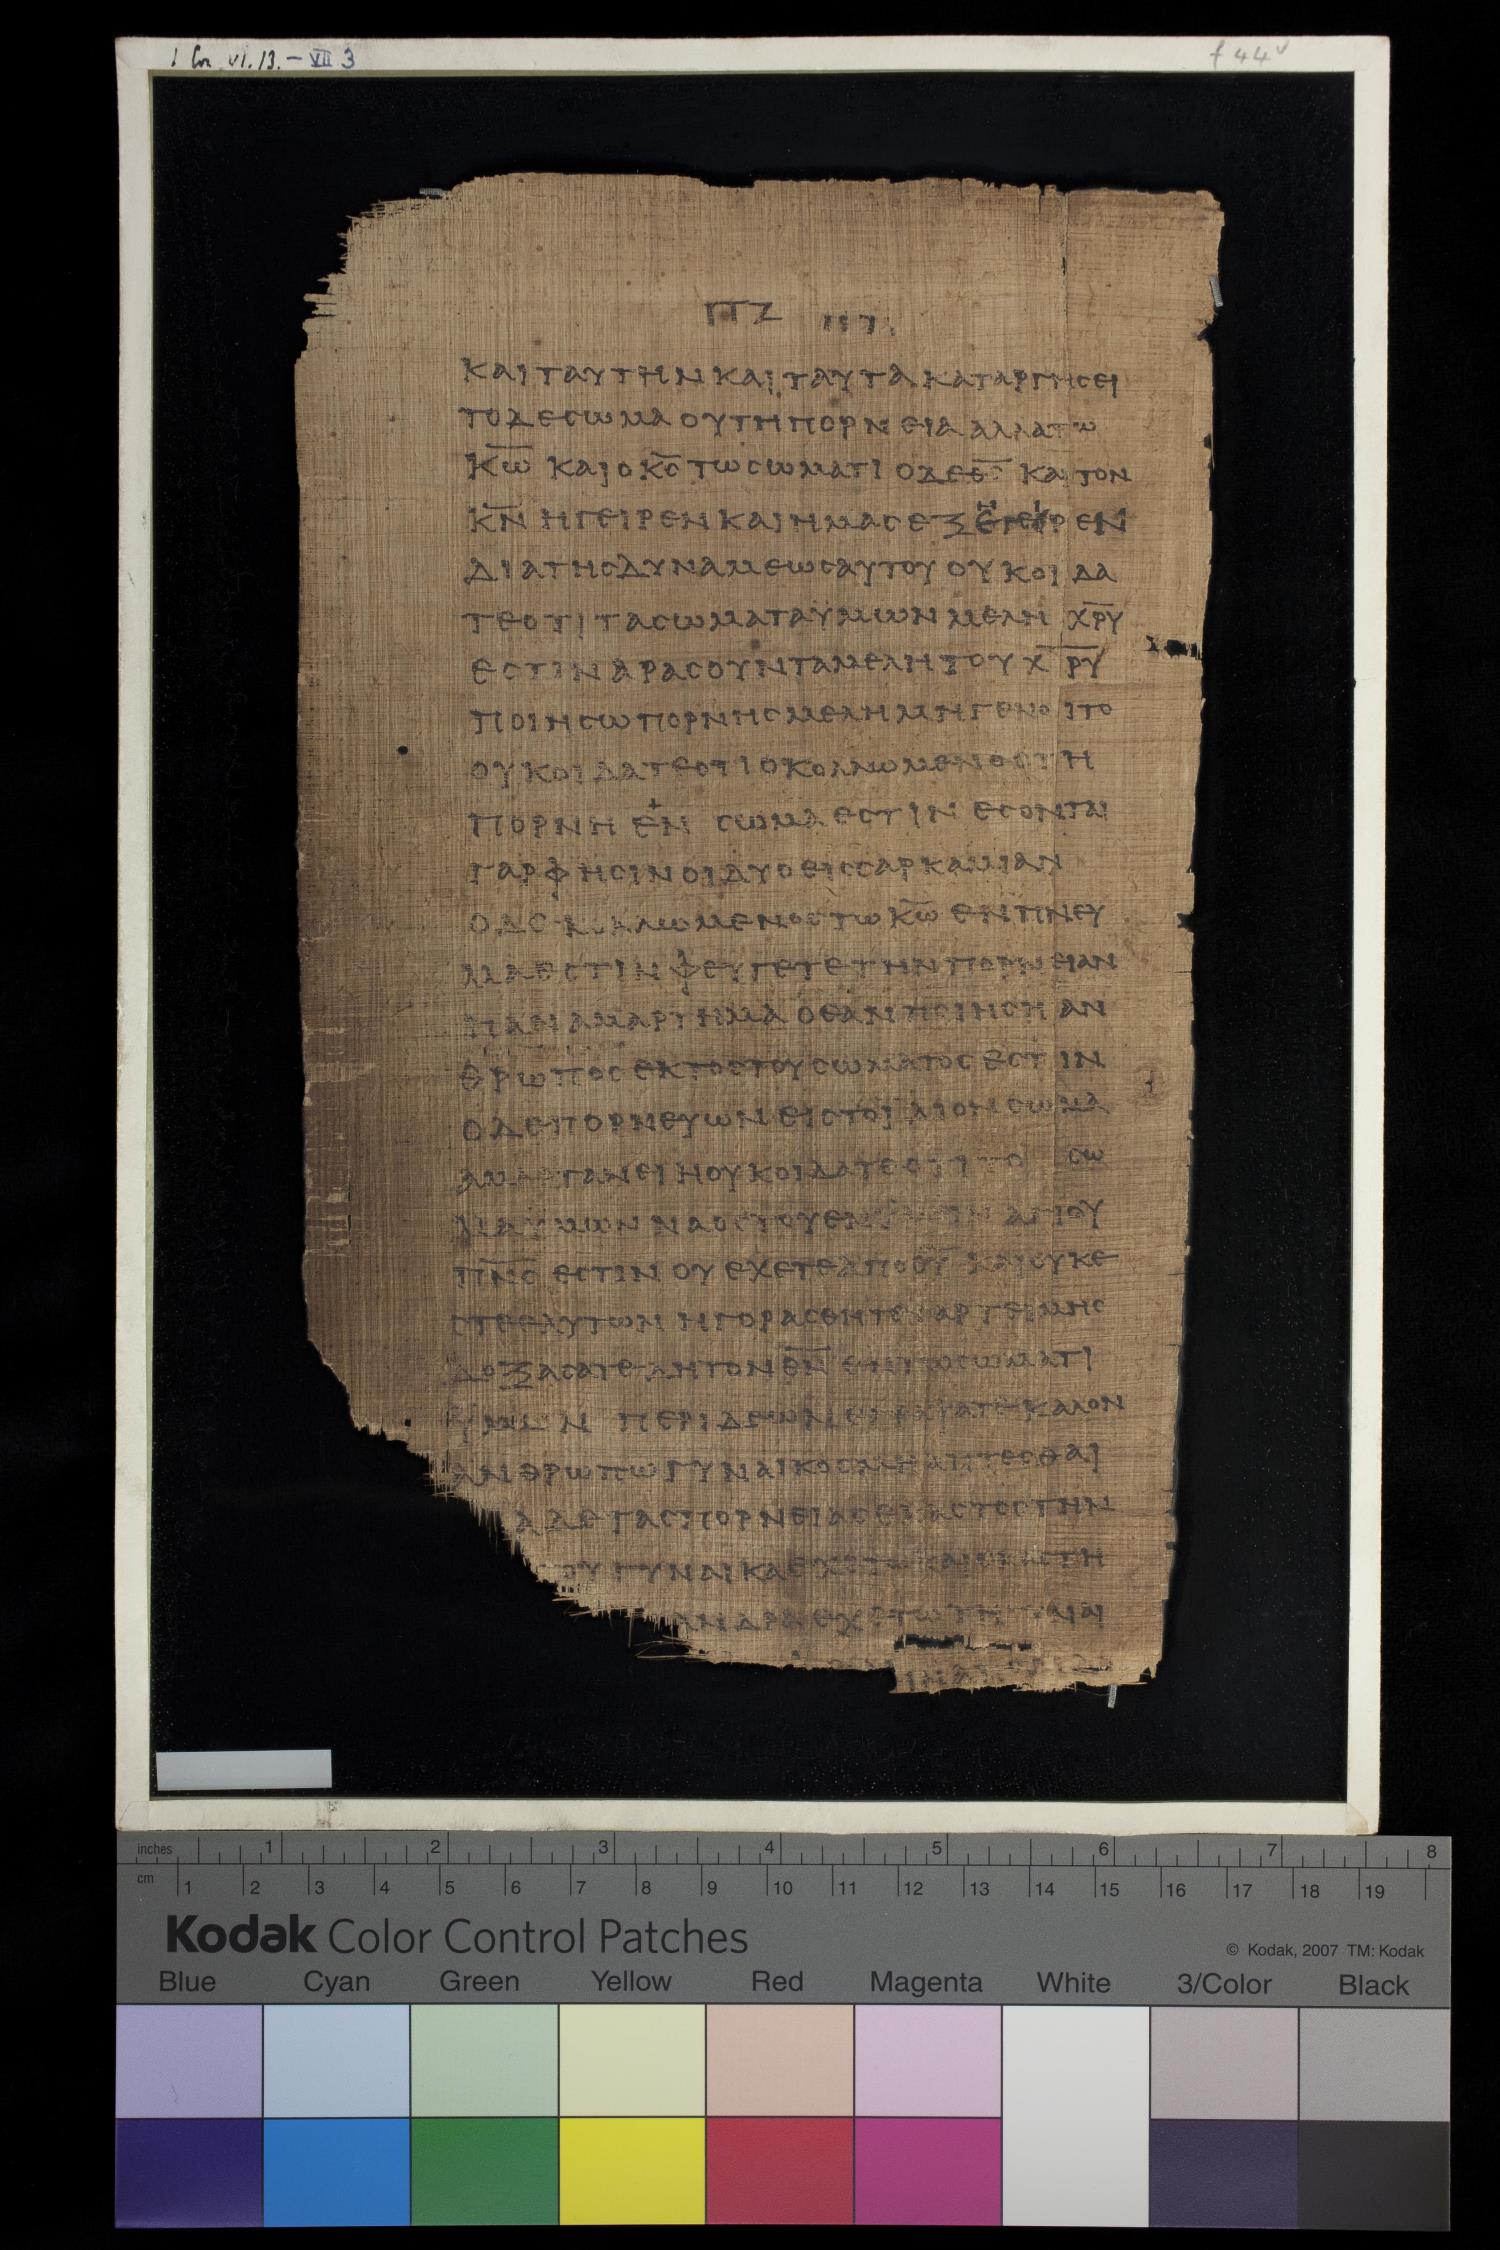 1 Cor VI. 13. – VII 3
f 44v
ΠΖ
ΚΑΙ ΤΑΥΤΗΝ ΚΑΙ ΤΑΥΤΑ ΚΑΤΑΡΓΗΣΕΙ
ΤΟ ΔΕ ΣΩΜΑ ΟΥ ΤΗ ΠΟΡΝΕΙΑ ΑΛΛΑ ΤΩ
Κ̅Ω̅ ΚΑΙ Ο Κ̅Σ̅ ΤΩ ΣΩΜΑΤΙ Ο ΔΕ Θ̅Σ̅ ΚΑΙ ΤΟΝ
Κ̅Ν̅ ΗΓΕΙΡΕΝ ΚΑΙ ΗΜΑΣ
ΔΙΑ ΤΗΣ ΔΥΝΑΜΕΩΣ ΑΥΤΟΥ ΟΥΚ ΟΙΔΑ
ΤΕ ΟΤΙ ΤΑ ΣΩΜΑΤΑ ΥΜΩΝ ΜΕΛΗ Χ̅Ρ̅Υ̅
ΕΣΤΙΝ ΑΡΑΣ ΟΥΝ ΤΑ ΜΕΛΗ ΤΟΥ Χ̅Ρ̅Υ̅
ΠΟΙΗΣΩ ΠΟΡΝΗΣ ΜΕΛΗ ΜΗ ΓΕΝΟΙΤΟ
ΟΥΚ ΟΙΔΑΤΕ ΟΤΙ Ο ΚΟΛΛΩΜΕΝΟΣ ΤΗ
ΠΟΡΝΗ ΕΝ ΣΩΜΑ ΕΣΤΙΝ ΕΣΟΝΤΑΙ
ΓΑΡ ΦΗΣΙΝ ΟΙ ΔΥΟ ΕΙΣ ΣΑΡΚΑ ΜΙΑΝ
Ο ΔΕ ΚΟΛΛΩΜΕΝΟΣ ΤΩ Κ̅Ω̅ ΕΝ ΠΝΕΥ
ΜΑ ΕΣΤΙΝ ΦΕΥΓΕΤΕ ΤΗΝ ΠΟΡΝΕΙΑΝ
ΠΑΝ ΑΜΑΡΤΗΜΑ Ο ΕΑΝ ΠΟΙΗΣΗ ΑΝ
ΘΡΩΠΟΣ ΕΚΤΟΣ ΤΟΥ ΣΩΜΑΤΟΣ ΕΣΤΙΝ
Ο ΔΕ ΠΟΡΝΕΥΩΝ ΕΙΣ ΤΟ ΙΔΙΟΝ ΣΩΜΑ
ΑΜΑΡΤΑΝΕΙ Η ΟΥΚ ΟΙΔΑΤΕ ΟΤΙ ΤΟ ΣΩ
ΜΑ ΥΜΩΝ ΝΑΟΣ ΤΟΥ ΕΝ ΥΜΙΝ ΑΓΙΟΥ
Π̅Ν̅Σ̅ ΕΣΤΙΝ ΟΥ ΕΧΕΤΕ ΑΠΟ Θ̅Υ̅ ΚΑΙ ΟΥΚ Ε
ΣΤΕ ΕΑΥΤΩΝ ΗΓΟΡΑΣΘΗΤΕ ΓΑΡ ΤΕΙΜΗΣ
ΔΟΞΑΣΑΤΕ ΔΗ ΤΟΝ Θ̅Ν̅ ΕΝ ΤΩ ΣΩΜΑΤΙ
ΥΜΩΝ ΠΕΡΙ ΔΕ ΩΝ ΕΓΡΑΨΑΤΕ ΚΑΛΟΝ
ΑΝΘΡΩΠΩ ΓΥΝΑΙΚΟΣ ΜΗ ΑΠΤΕΣΘΑΙ
Α ΔΕ ΤΑΣ ΠΟΡΝΕΙΑΣ ΕΚΑΣΤΟΣ ΤΗΝ
ΟΥ ΓΥΝΑΙΚΑ ΕΧΕΤΩ ΚΑΙ ΕΚΑΣΤΗ
ΑΝΔΡΑ ΕΧΕΤΩ ΤΗ ΓΥΝΑΙ
inches 1 2 3 4 5 6 7 8
cm 1 2 3 4 5 6 7 8 9 10 11 12 13 14 15 16 17 18 19
Kodak Color Control Patches
© Kodak, 2007 TM: Kodak
Blue Cyan Green Yellow Red Magenta White 3/Color Black